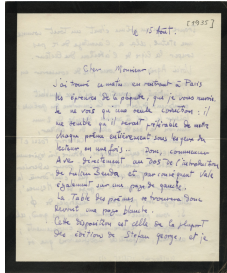 [1935]
le 15 Août.
Cher Monsieur
j'ai trouvé ce matin, en rentrant à Paris
les épreuves de la plaquette, que je vous renvoie.
Je ne vois qu'une seule correction : il
me semble qu'il serait préférable de mettre
chaque poème entièrement sous les yeux du
lecteur en une fois. Donc, commencer
directement au DOS de l'introduction
de, et par conséquent
également sur une page de gauche.
La Table des poèmes se trouvera donc
devant une page blanche.
Cette disposition est celle de la plupart
des éditions de Stefan George, et je